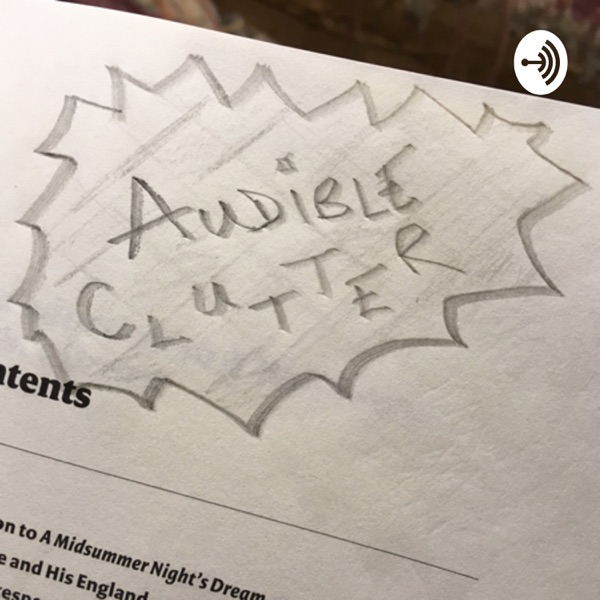 AUDiBLE
CLUTTER
ntents
on to A Midsummer Night's Dream
e and His England